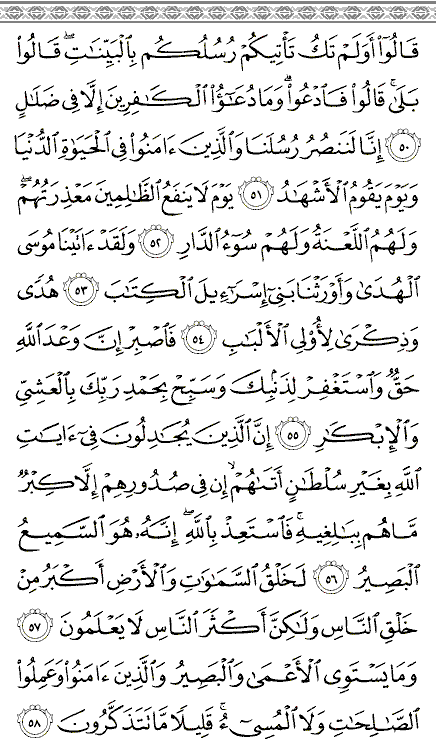 قَالُوٓا۟ أَوَلَمْ تَكُ تَأْتِيكُمْ رُسُلُكُم بِٱلْبَيِّنَٰتِ ۖ قَالُوا۟
بَلَىٰ ۚ قَالُوا۟ فَٱدْعُوا۟ ۗ وَمَا دُعَٰٓؤُا۟ ٱلْكَٰفِرِينَ إِلَّا فِى ضَلَٰلٍ
٥٠ إِنَّا لَنَنصُرُ رُسُلَنَا وَٱلَّذِينَ ءَامَنُوا۟ فِى ٱلْحَيَوٰةِ ٱلدُّنْيَا
وَيَوْمَ يَقُومُ ٱلْأَشْهَٰدُ ٥١ يَوْمَ لَا يَنفَعُ ٱلظَّٰلِمِينَ مَعْذِرَتُهُمْ ۖ
وَلَهُمُ ٱللَّعْنَةُ وَلَهُمْ سُوٓءُ ٱلدَّارِ ٥٢ وَلَقَدْ ءَاتَيْنَا مُوسَى
ٱلْهُدَىٰ وَأَوْرَثْنَا بَنِىٓ إِسْرَٰٓءِيلَ ٱلْكِتَٰبَ ٥٣ هُدًى
وَذِكْرَىٰ لِأُو۟لِى ٱلْأَلْبَٰبِ ٥٤ فَٱصْبِرْ إِنَّ وَعْدَ ٱللَّهِ
حَقٌّ وَٱسْتَغْفِرْ لِذَنۢبِكَ وَسَبِّحْ بِحَمْدِ رَبِّكَ بِٱلْعَشِىِّ
وَٱلْإِبْكَٰرِ ٥٥ إِنَّ ٱلَّذِينَ يُجَٰدِلُونَ فِىٓ ءَايَٰتِ
ٱللَّهِ بِغَيْرِ سُلْطَٰنٍ أَتَىٰهُمْ ۙ إِن فِى صُدُورِهِمْ إِلَّا كِبْرٌ
مَّا هُم بِبَٰلِغِيهِ ۚ فَٱسْتَعِذْ بِٱللَّهِ ۖ إِنَّهُۥ هُوَ ٱلسَّمِيعُ
ٱلْبَصِيرُ ٥٦ لَخَلْقُ ٱلسَّمَٰوَٰتِ وَٱلْأَرْضِ أَكْبَرُ مِنْ
خَلْقِ ٱلنَّاسِ وَلَٰكِنَّ أَكْثَرَ ٱلنَّاسِ لَا يَعْلَمُونَ ٥٧
وَمَا يَسْتَوِى ٱلْأَعْمَىٰ وَٱلْبَصِيرُ وَٱلَّذِينَ ءَامَنُوا۟ وَعَمِلُوا۟
ٱلصَّٰلِحَٰتِ وَلَا ٱلْمُسِىٓءُ ۚ قَلِيلًا مَّا تَتَذَكَّرُونَ ٥٨